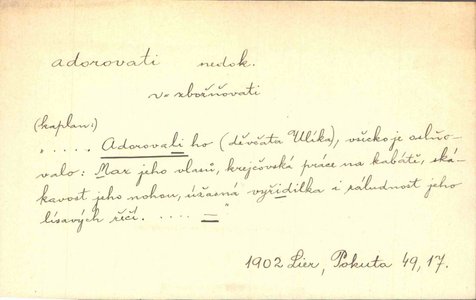 adorovati nedok.
v= zbožňovati
(kaplan:)
„ . . . . Adorovali ho (děvčata Ulíka), všecko je oslňo-
valo: Mar jeho vlasů, krejčovská práce na kabátě, ská-
kavost jeho nohou, úžasná vyřidilka i záludnost jeho
lísavých řečí. . . . . — "
1902 Lier, Pokuta 49, 17.